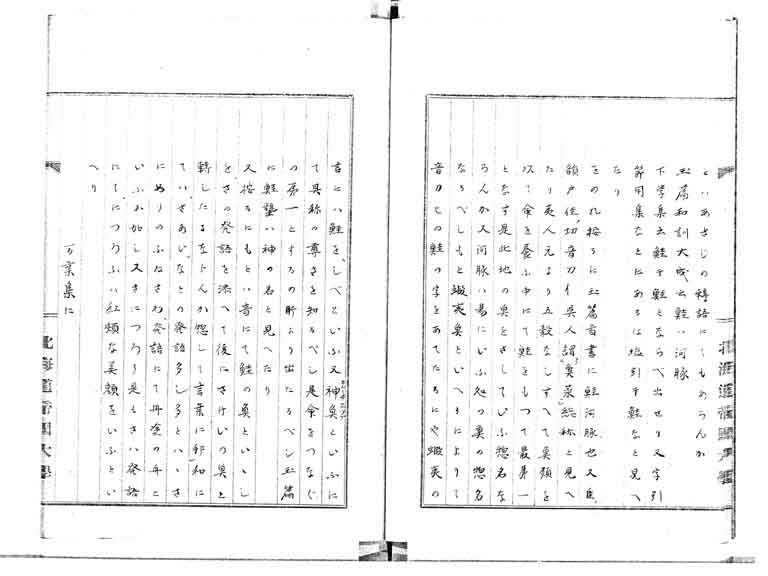 といあさじの轉語にてもあらんか
玉篇和訓大成云鮭ハ河豚
下学集云鮭干鮭とならべ出せり又字引
節用集なとにあるは塩引干鮭なと見へ
たり
をのれ按るに玉篇音書に鮭河豚也又
額戸佳切音刀イ呉人謂魚菜総称と見へ
たり夷人元より五穀なしすへて魚類を
以て命を養ふ中にて鮭をもつて最第一
となす是此地の魚をさしていふ惣名な
らんか又河豚ハ易にいふ処の魚の惣名
なるべしもと蝦夷魚といへるによりて
音刀くの鮭の字をあてたるにや蝦夷の
言にハ鮭をしべといふ又神魚といふに
て其称の尊きを知るべし是命をつなぐ
の第一とするの所より出たるべし玉篇
に鮭蟄ハ神の名と見へたり
又按るにもといハ音にて鮭の魚といゝし
をさの発語を添へて後にさけいの魚と
轉したるならんか惣して言葉に
ていさあいなとの発語多し多とハゝさ
にぬりのふねさわ発語にて丹塗の舟と
いふか如し又さにつろう是もさハ発語
にてにつろふハ紅頬な美頬をいふとい
へり
万葉集に
北海道帝国大学
北海道帝国大学